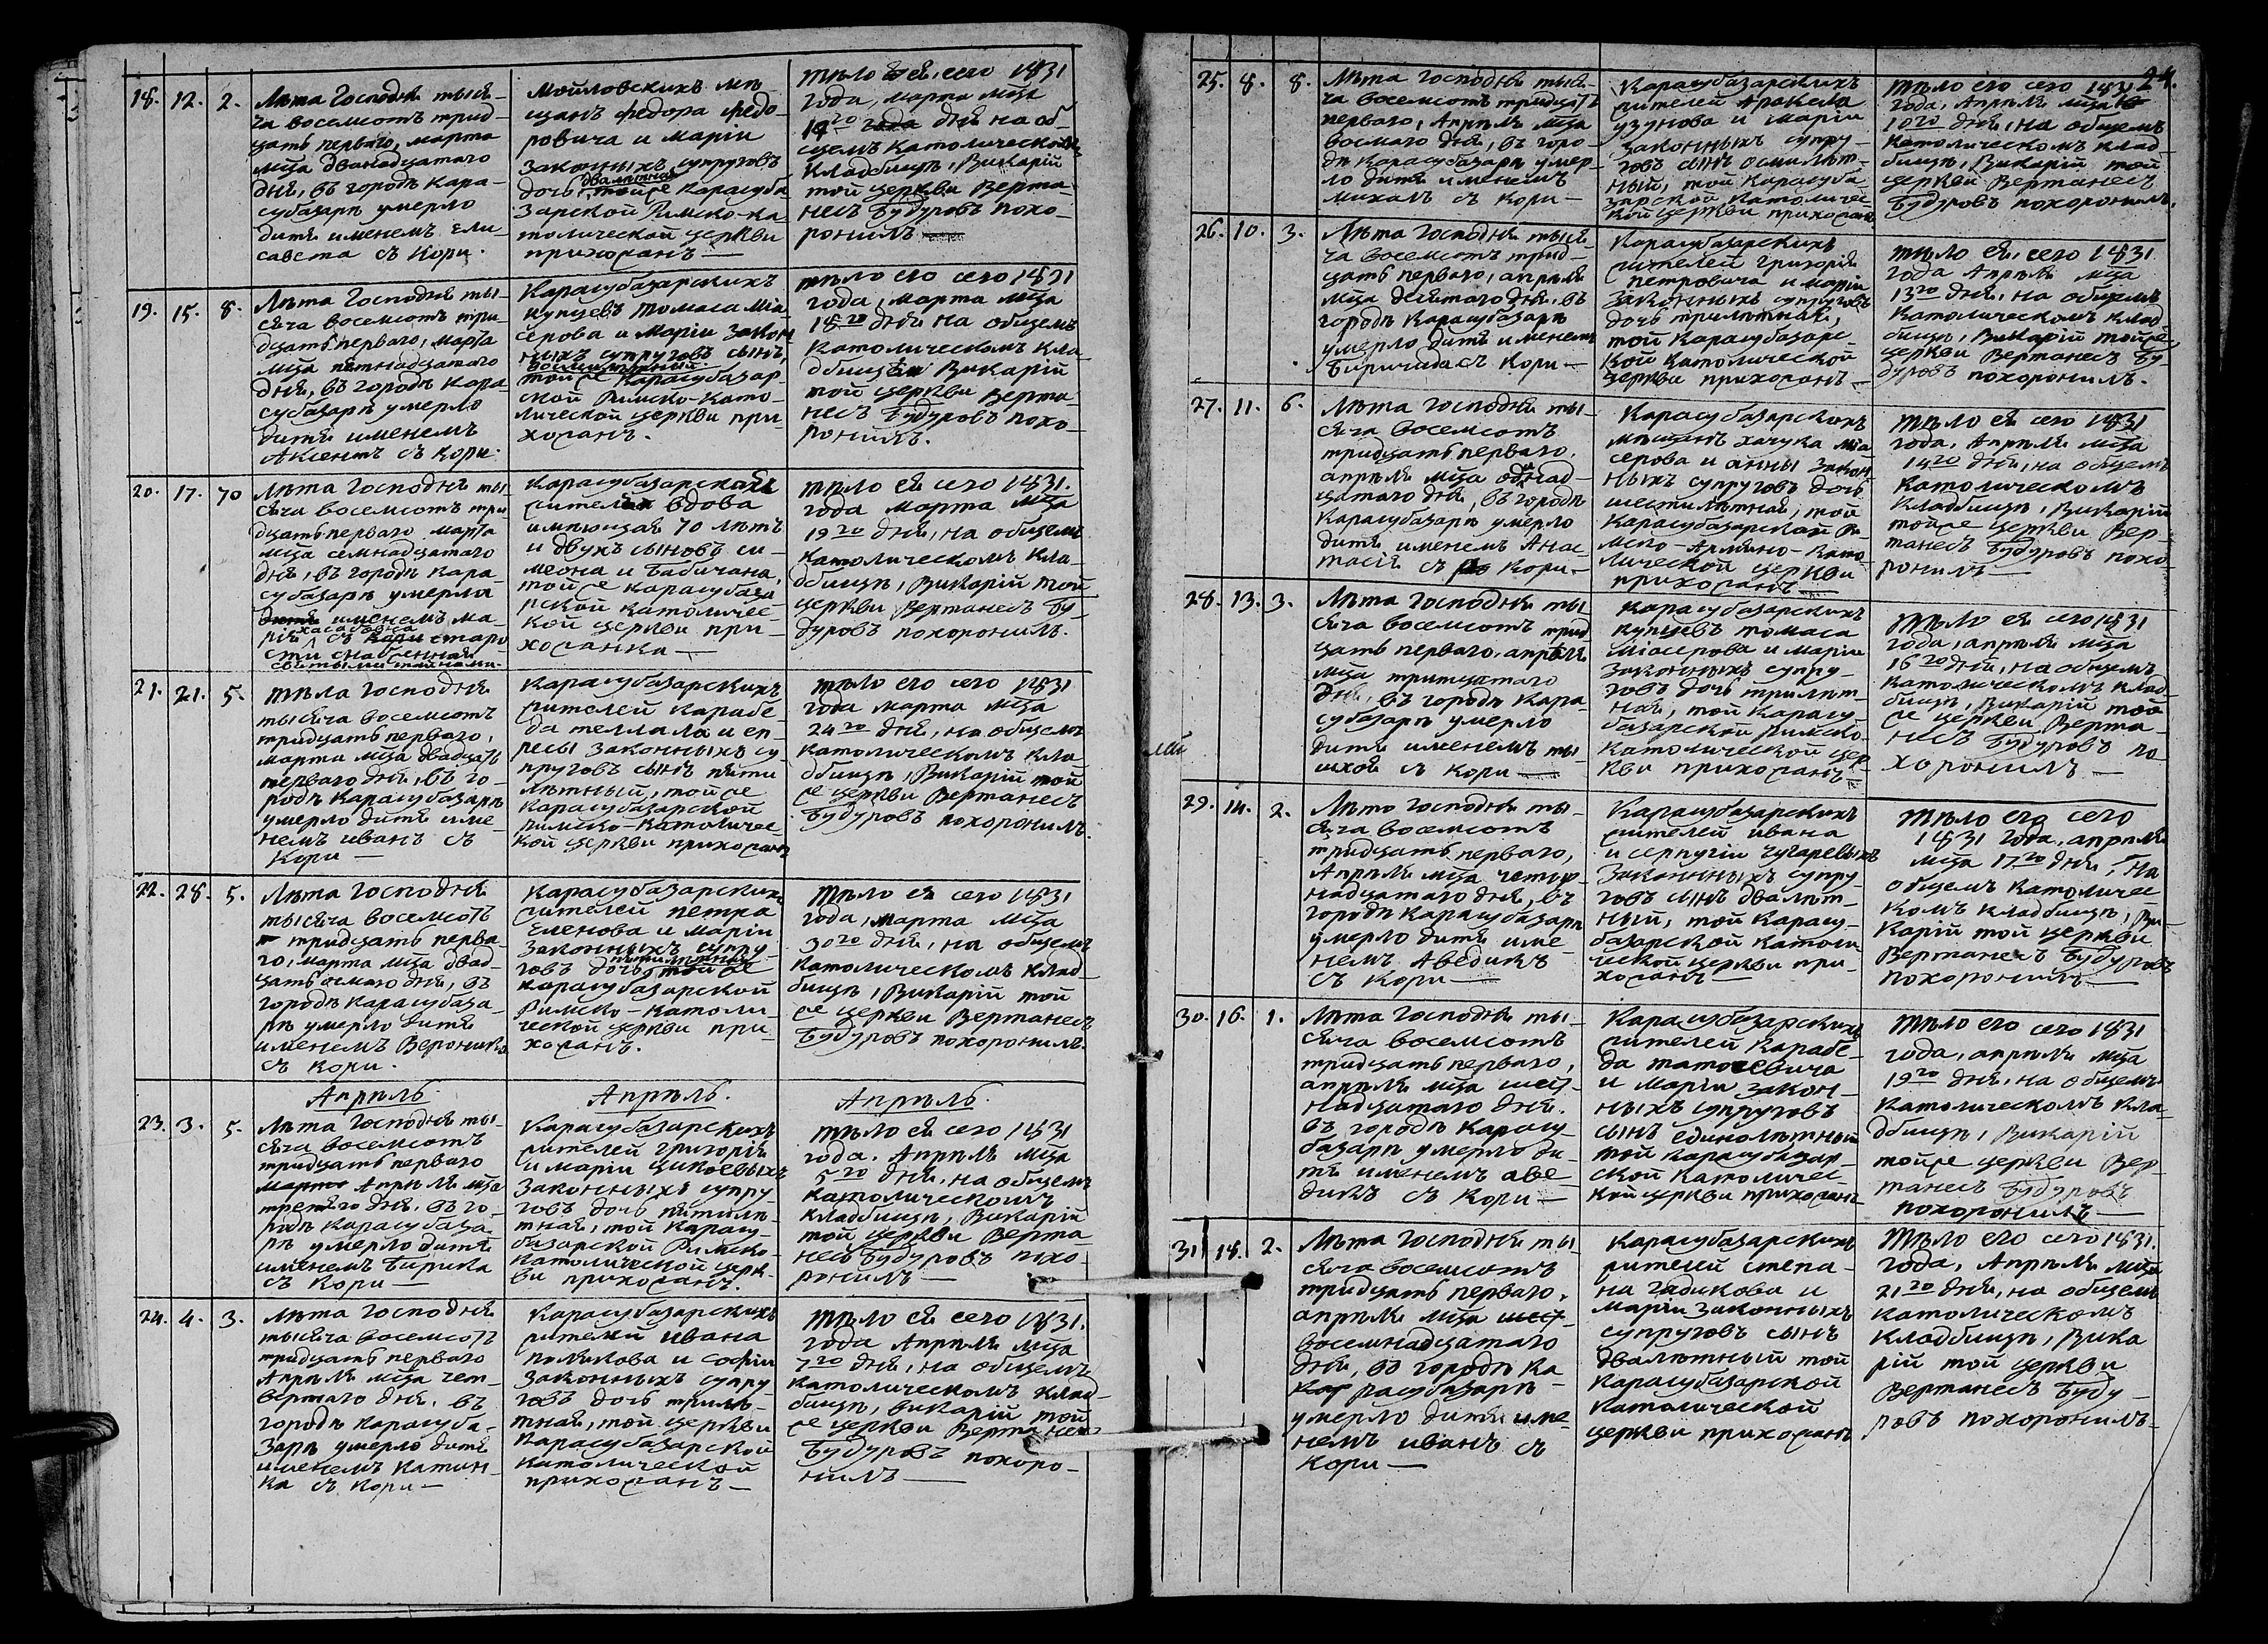 18. 12. 2.
Лѣта Господня тыся-
ча восемсотъ трид-
цать перваго, марта
мца дванадцатаго
дня, въ городѣ Кара-
субазарѣ умерло
дитя именемъ Ели-
савета съ Кори.
Мойловскихъ мѣ
щанъ Федора Федо-
ровича и Маріи
законныхъ супруговъ
двалѣтная
дочь, тойже Карасуба
зарской Римско-ка
толической церкви
прихожанъ —
тѣло ея, сего 1831
года, марта мца
14го дня на об-
щемъ Католическомъ
Кладбищѣ, Викарій
той церкви Верта-
несъ Будуровъ похо-
ронилъ
19. 15. 8.
Лѣта Господня ты-
сяча восемсотъ три-
дцать перваго, марта
мца петнадцатаго
дня, въ городѣ Кара
субазарѣ умерло
дитя именемъ
Аксентъ съ Кори.
Карасубазарскихъ
купцевъ Томаса Міа-
серова и Маріи закон
ныхъ супруговъ сынъ,
восмилѣтный
тойже Карасубазар-
ской Римско-Като-
лической церкви при-
хожанъ.
тѣло его сего 1831
года, марта мца
18го дня на общемъ
Католическомъ кла-
дбищѣ Викарій
той церкви Верта-
несъ Будуровъ похо-
ронилъ.
20. 17. 70
Лѣта Господня ты-
сяча восемсотъ три
дцать перваго марта
мца семнадцатаго
дня, въ городѣ Кара-
субазарѣ умерла
дитя именемъ Ма-
рія съ Кори старо
сти снабженная
святыми тайнами.
Карасубазарская
жителя вдова
имѣющая 70 лѣтъ
и двухъ сыновъ Си-
меона и Бабичана,
тойже Карасубаза
рской Католичес-
кой церкви при-
хожанка —
тѣло ея сего 1831.
года марта мца
19го дня, на общемъ
католическомъ кла-
дбищѣ, Викарій той
церкви Вертанесъ Бу-
дуровъ похоронилъ.
21. 21. 5.
тѣла Господня
тысяча восемсотъ
тридцать перваго,
марта мца двадцать
перваго дня, въ го-
родѣ Карасубазарѣ
умерло дитя име-
немъ Иванъ съ
Кори —
Карасубазарскихъ
жителей Карабе-
да Теллала и еп-
ресы законныхъ су-
пруговъ сынъ пяти
лѣтный, тойже
Карасубазарской
Римско-Католичес-
кой церкви прихожанъ
тѣло его сего 1831
года марта мца
24го дня, на общемъ
католическомъ кла-
дбищѣ, Викарій той
же церкви Вертанесъ
Будуровъ похоронилъ.
22. 28. 5.
Лѣта Господня
тысяча восемсотъ
тридцать перва-
го, марта мца двад-
цать осмаго дня, въ
городѣ Карасубаза-
рѣ умерло дитя
именемъ Вероника
съ Кори.
Карасубазарскихъ
жителей Петра
Еленова и Маріи
законныхъ супру-
пятилѣтная
говъ дочь, той же
Карасубазарской
Римско-Католи-
ческой церкви при-
хожанъ.
тѣло ея сего 1831
года, марта мца
30го дня, на общемъ
католическомъ клад-
бищѣ, Викарій той
же церкви Вертанесъ
Будуровъ похоронилъ.
Апрѣль. Апрѣль. Апрѣль.
23. 3. 5.
Лѣта Господня ты-
сяча восемсотъ
тридцать перваго
марта Апрѣля мца
третяго дня, въ го-
родѣ Карасубаза-
рѣ умерло дитя
именемъ Бирика
съ Кори —
Карасубазарскихъ
жителей Григорія
и Маріи Цикоевыхъ
законныхъ супру-
говъ дочь пятилѣ-
тная, той Карасу-
базарской Римско-
Католической церк-
ви прихожанъ.
тѣло ея сего 1831
года. Апрѣля мца
5го дня, на общемъ
католическомъ
кладбищѣ, Викарій
той церкви Верта
несъ Будуровъ похо-
ронилъ —
24. 4. 3.
Лѣта Господня
тысяча восемсотъ
тридцать перваго
Апрѣля мца чет-
вертаго дня, въ
городѣ Карасуба-
зарѣ умерло дитя
именемъ Катин-
ка съ Кори —
Карасубазарскихъ
жителей Ивана
Полякова и Софіи
законныхъ супру-
говъ дочь трилѣ-
тная, той церкви
Карасубазарской
Католической
прихожанъ —
тѣло ея сего 1831.
года Апрѣля мца
7го дня, на общемъ
католическомъ клад-
бищѣ, викарій той
же церкви Вертанесъ
Будуровъ похоро-
нилъ —
24.
25. 8. 8.
Лѣта Господня тыся-
ча восемсотъ тридцать
перваго, Апрѣля мца
восмаго дня, въ горо-
дѣ Карасубазарѣ умер-
ло дитя именемъ
Михаилъ съ Кори —
Карасубазарскихъ
жителей Аракела
Узунова и Маріи
законныхъ супру-
говъ сынъ осмилѣт-
ный, той Карасуба-
зарской Католичес-
кой церкви прихожанъ
тѣло его сего 1831
года, Апрѣля мца
10го дня, на общемъ
католическомъ клад-
бищѣ, Викарій той
церкви Вертанесъ
Будуровъ похоронилъ.
26. 10. 3.
Лѣта Господня тыся-
ча восемсотъ трид-
цать перваго, апрѣля
мца десятаго дня, въ
городѣ Карасубазарѣ
умерло дитя именемъ
Биричада съ Кори —
Карасубазарскихъ
жителей Григорія
Петровича и Маріи
законныхъ супруговъ
дочь трилѣтная,
той Карасубазарс-
кой Католической
церкви прихожанъ —
тѣло ея, сего 1831.
года Апрѣля мца
13го дня, на общемъ
Католическомъ клад
бищѣ, Викарій тойже
церкви Вертанесъ Бу-
дуровъ похоронилъ.
27. 11. 6.
Лѣта Господня ты-
сяча восемсотъ
тридцать перваго.
апрѣля мца однад-
цатаго дня, въ городѣ
Карасубазарѣ умерло
дитя именемъ Анас-
тасія съ Кори —
Карасубазарскихъ
мѣщанъ Хачука Міа
серова и Анны закон
ныхъ супруговъ дочь
шестилѣтная, той
Карасубазарской Ри-
мско-Армяно-Като
лической церкви
прихожанъ —
тѣло ея сего 1831
года, Апрѣля мца
14го дня, на общемъ
Католическомъ
Кладбищѣ, Викарій
тойже церкви Вер-
танесъ Будуровъ похо-
ронилъ —
28. 13. 3.
Лѣта Господня ты
сяча восемсотъ трид
цать перваго, апрѣля
мца тритцатаго
дня, въ городѣ Кара-
субазарѣ умерло
дитя именемъ Ты-
шхоя съ Кори —
Карасубазарскихъ
купцевъ Томаса
Міасерова и Маріи
законныхъ супру-
говъ дочь трилѣт-
ная, той Карасу-
базарской Римско-
Католической цер-
кви прихожанъ —
тѣло ея сего 1831
года, апрѣля мца
16го дня, на общемъ
католическомъ клад-
бищѣ, Викарій той
же церкви Верта-
несъ Будуровъ по-
хоронилъ —
29. 14. 2.
Лѣто Господня ты-
сяча восемсотъ
тридцать перваго,
Апрѣля мца четыр-
надцатаго дня, въ
городѣ Карасубазарѣ
умерло дитя име-
немъ Аведикъ
съ Кори —
Карасубазарскихъ
жителей Ивана
и Серпугіи Чугаревыхъ
законныхъ супру-
говъ сынъ двалѣт-
ный, той Карасу-
базарской Католи
ческой церкви при-
хожанъ —
тѣло его сего
1831 года, апрѣля
мца 17го дня, на
общемъ католичес
комъ кладбищѣ, Ви-
карій той церкви
Вертанесъ Будуровъ
похоронилъ —
30. 16. 1.
Лѣта Господня ты-
сяча восемсотъ
тридцать перваго,
апрѣля мца шест-
надцатаго дня.
въ городѣ Карасу-
базарѣ умерло ди-
тя именемъ Аве-
дикъ съ Кори —
Карасубазарскихъ
жителей Карабе-
да Татосевича
и Маріи закон-
ныхъ супруговъ
сынъ единолѣтный
той Карасубазар-
ской Католичес-
кой церкви прихожанъ
тѣло его сего 1831
года, апрѣля мца
19го дня, на общемъ
католическомъ кла-
дбищѣ, Викарій
тойже церкви Вер-
танесъ Будуровъ
похоронилъ —
31. 18. 2.
Лѣта Господня ты-
сяча восемсотъ
тридцать перваго.
апрѣля мца шест-
восемнадцатаго
дня, въ городѣ Ка
Кар расубазарѣ —
умерло дитя име-
немъ Иванъ съ
Кори —
Карасубазарскихъ
жителей Степа-
на Гадикова и
Маріи законныхъ
супруговъ сынъ
двалѣтный той
Карасубазарской
Католической
церкви прихожанъ
Тѣло его сего 1831.
года, Апрѣля мца
21го дня, на общемъ
католическомъ
Кладбищѣ, Вика
рій той церкви
Вертанесъ Буду-
ровъ похоронилъ —